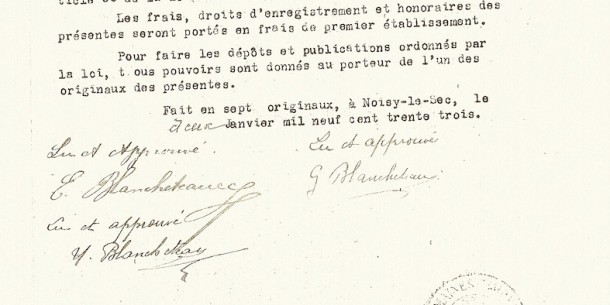 Les frais, droits d'enregistrement et honoraires des
présentes seront portés en frais de premier établissement.
Pour faire les dépôts et publications ordonnés par
la loi, t ous pouvoirs sont donnés au porteur de l'un des
originaux des présentes.
Fait en sept originaux, à Noisy-le-Sec, le
deux Janvier mil neuf cent trente trois.
Lu et Approuvé.
Lu et approuvé
E. Blancheteau
G Blancheteau
Lu et approuvé
Y. Blancheteau